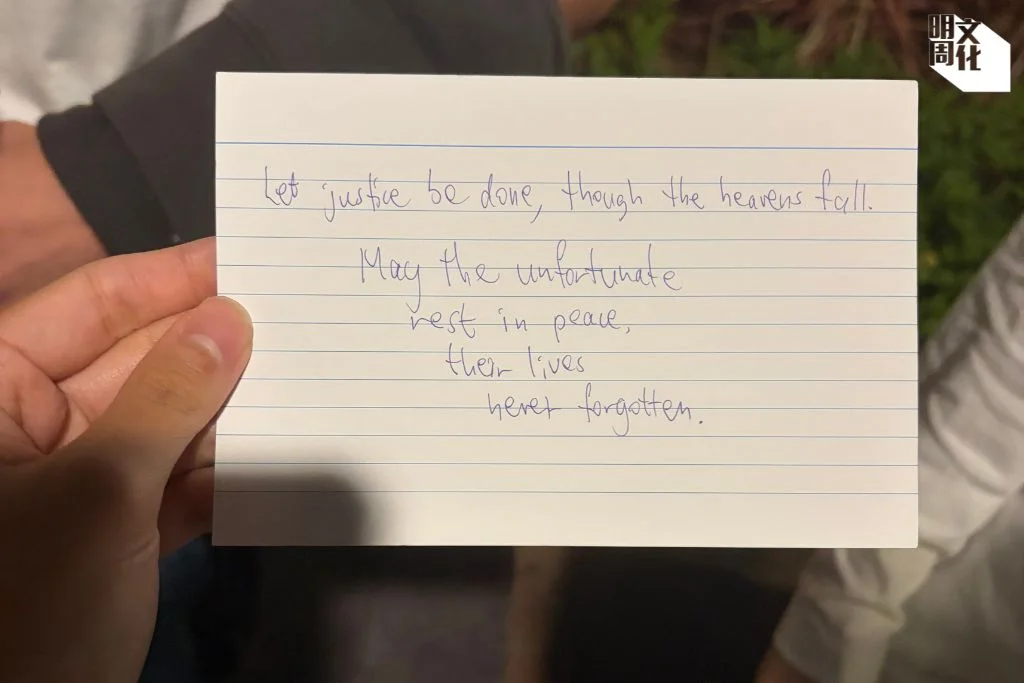 明周文化
Let justice be done, though the heavens fall.
May the unfortunate
rest in peace,
their lives
never forgotten.